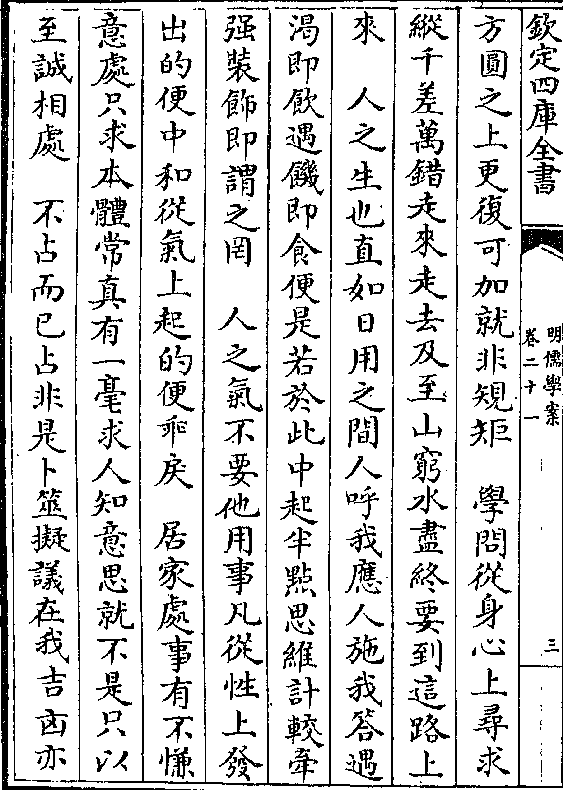 欽定四庫全書
明儒學案
卷二十一
三
方圓之上更復可加就非規矩　學問從身心上尋求
縱千差萬錯走來走去及至山窮水盡終要到這路上
來　人之生也直如日用之間人呼我應人施我答遇
渴即飲遇饑即食便是若於此中起半點思維計較牽
强裝飾即謂之罔　人之氣不要他用事凡從性上發
出的便中和從氣上起的便乖戾　居家處事有不慊
意處只求本體常真有一毫求人知意思就不是只以
至誠相處　不占而已占非是卜筮擬議在我吉凶亦